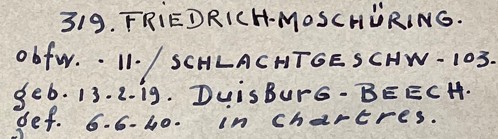 319. FRIEDRICH-MOSCHÜRING.
obfw. · 11. / SCHLACHTGESCHW - 103.
geb. 13-2-19. DuisBuRG - BEECH.
gef. 6-6-40. in chartres.